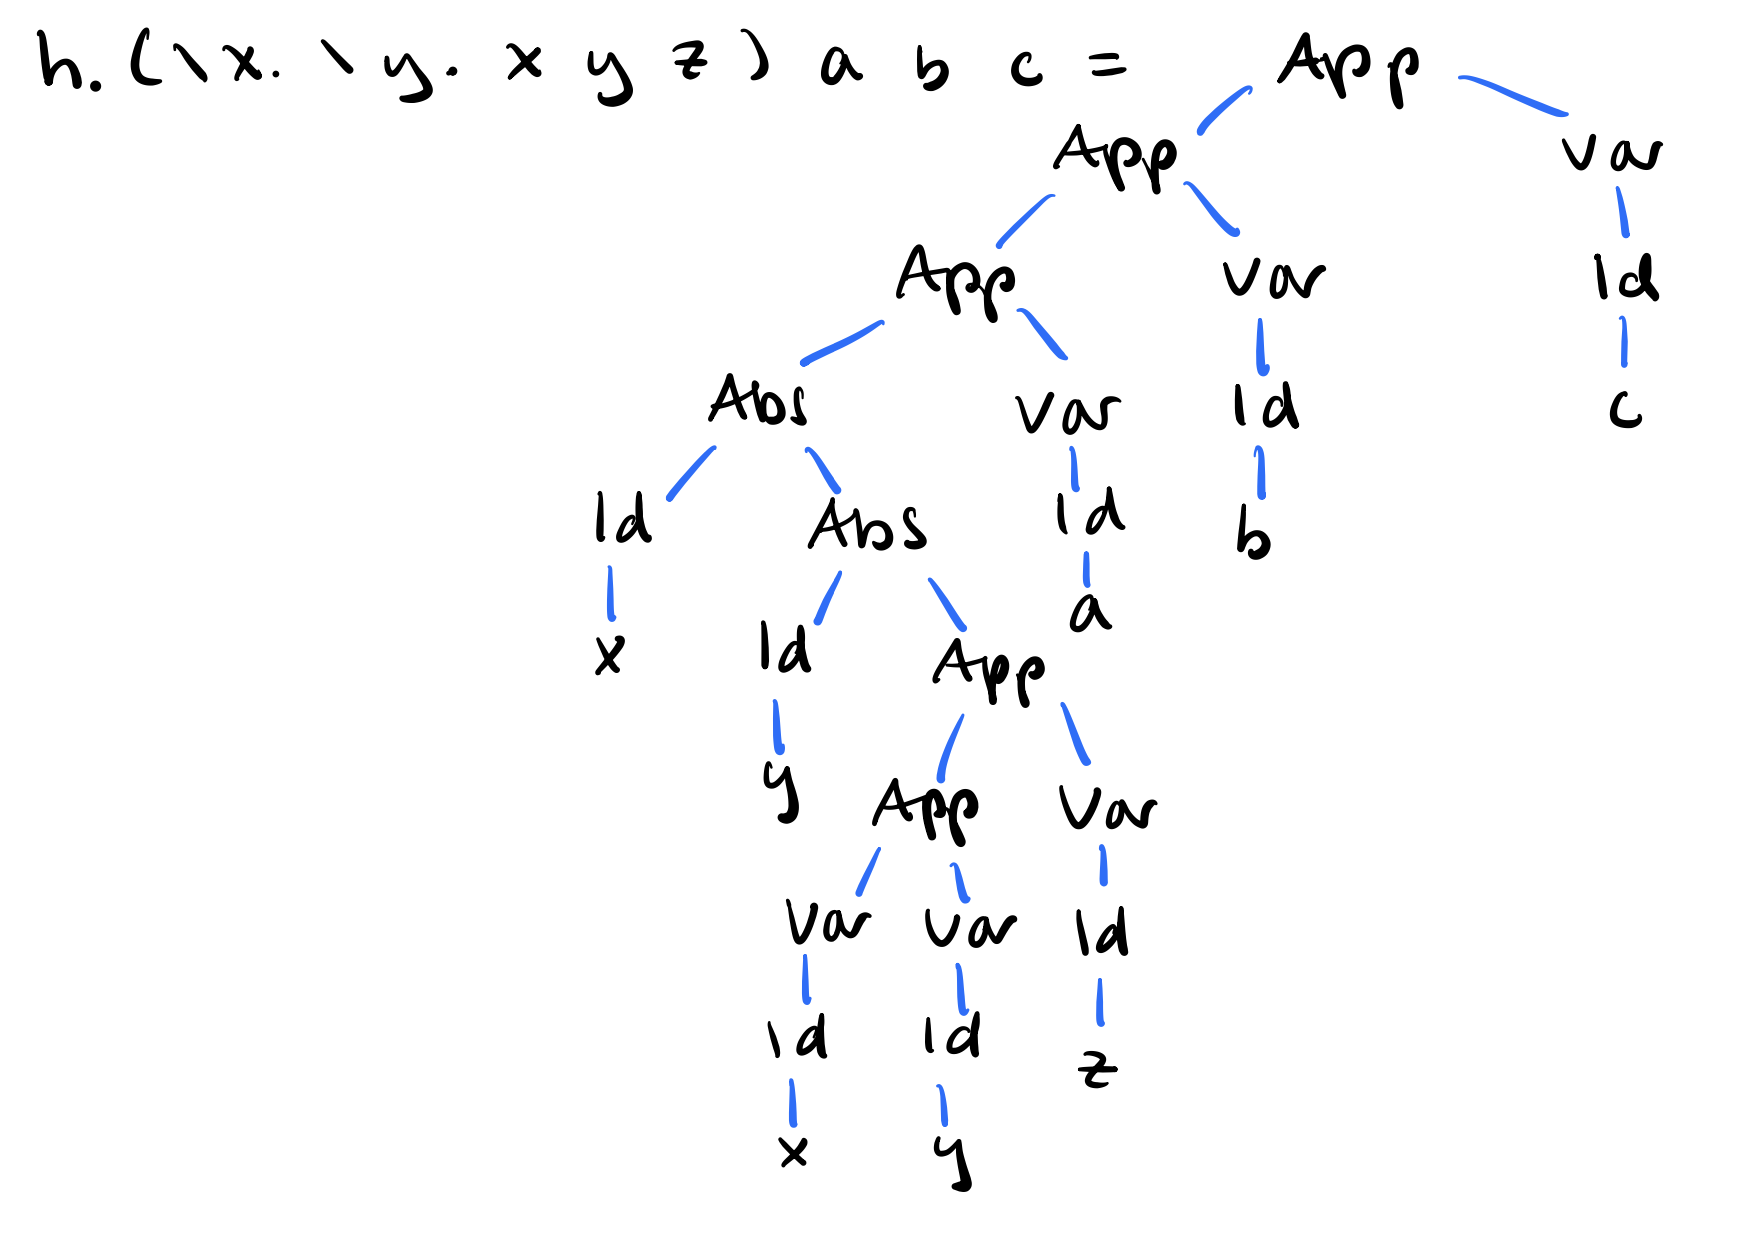 h. (\x. \y. x y z) a b c = App
App Var
App Var Id
Abs Var Id c
Id Abs Id b
x Id App a
y App Var
Var Var Id
Id Id z
x y